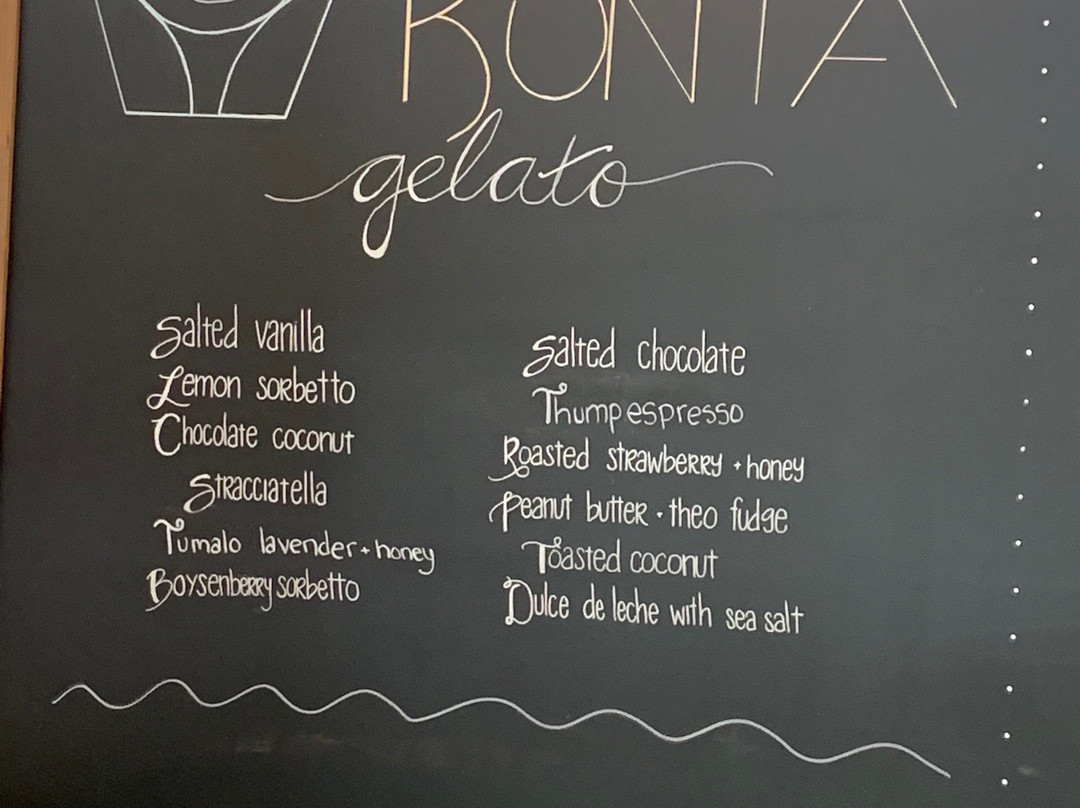 BONTA
gelato
Salted vanilla
Lemon sorbetto
Chocolate coconut
Stracciatella
Tumalo lavender + honey
Boysenberry sorbetto
Salted chocolate
Thump espresso
Roasted strawberry + honey
Peanut butter · theo fudge
Toasted coconut
Dulce de leche with sea salt